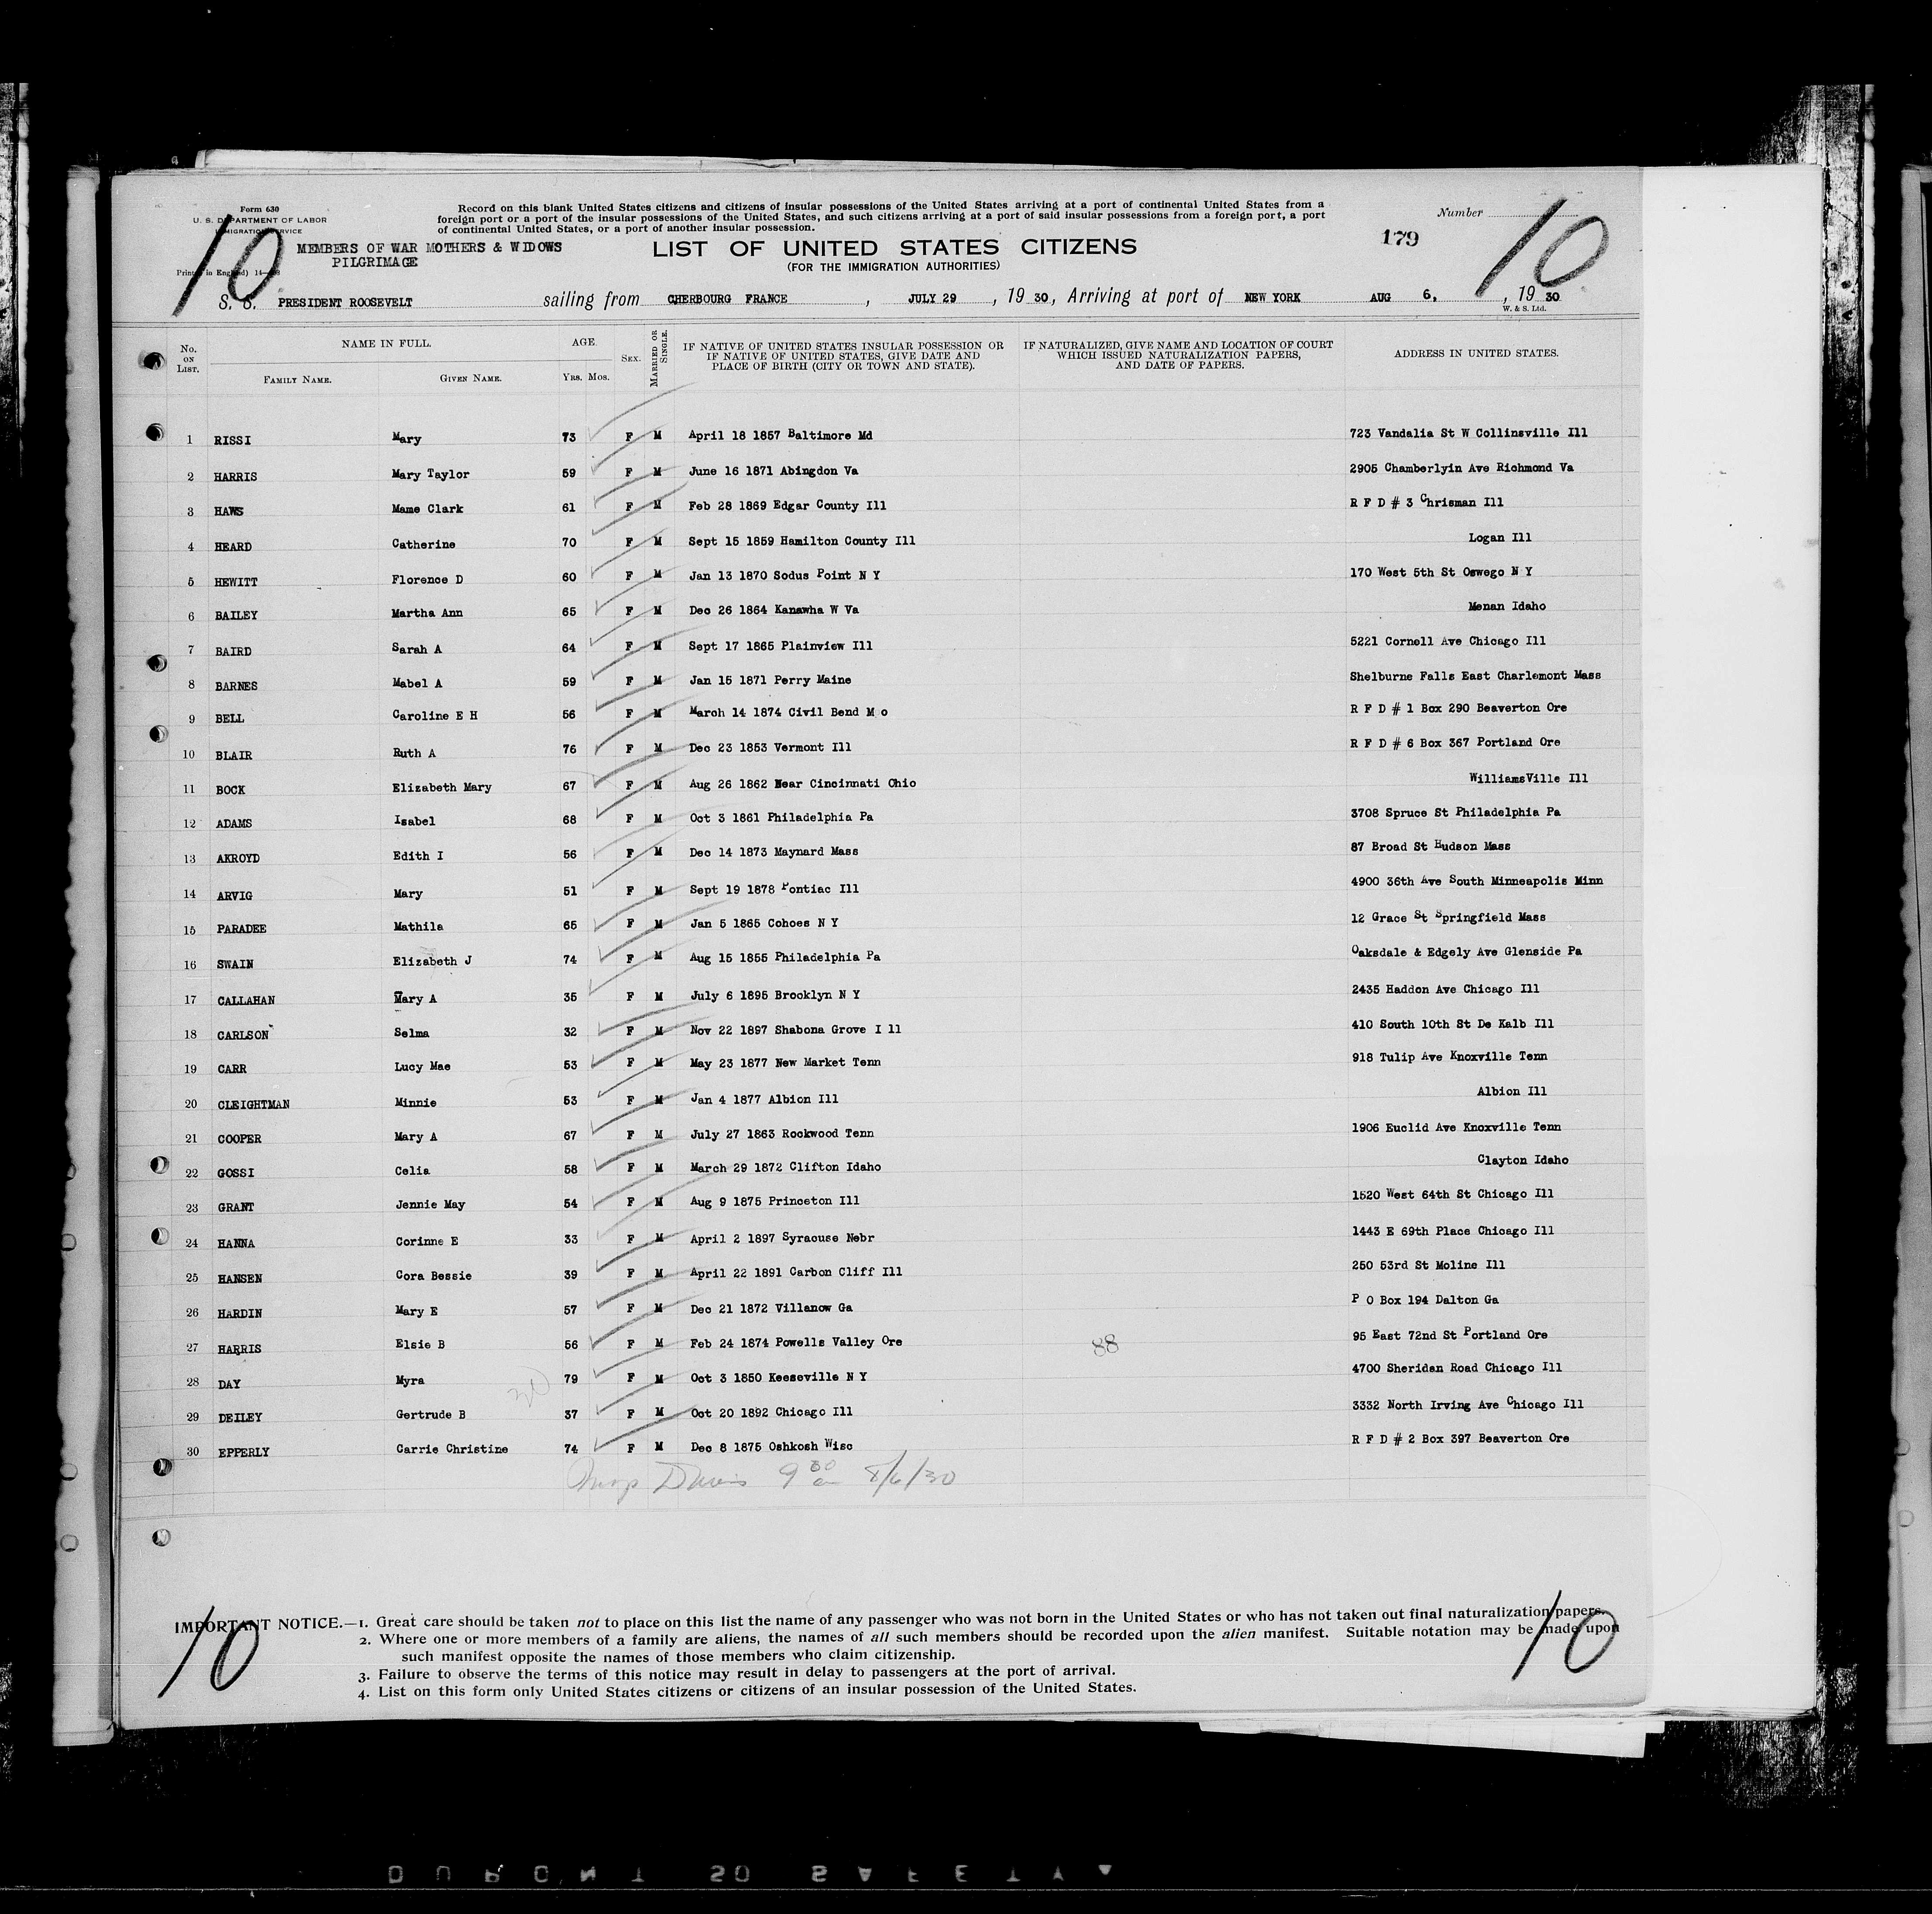 Form 630
U. S. DEPARTMENT OF LABOR
IMMIGRATION SERVICE
Record on this blank United States citizens and citizens of insular possessions of the United States arriving at a port of continental United States from a
foreign port or a port of the insular possessions of the United States, and such citizens arriving at a port of said insular possessions from a foreign port, a port
of continental United States, or a port of another insular possession.
Number
10
10
179
MEMBERS OF WAR MOTHERS & WIDOWS
PILGRIMAGE
LIST OF UNITED STATES CITIZENS
(FOR THE IMMIGRATION AUTHORITIES)
S. S. PRESIDENT ROOSEVELT sailing from CHERBOURG FRANCE , JULY 29 , 19 30, Arriving at port of NEW YORK AUG 6, , 19 30
W. & S. Ltd.
No. ON LIST. NAME IN FULL. AGE. SEX. MARRIED OR SINGLE. IF NATIVE OF UNITED STATES INSULAR POSSESSION OR IF NATIVE OF UNITED STATES, GIVE DATE AND PLACE OF BIRTH (CITY OR TOWN AND STATE). IF NATURALIZED, GIVE NAME AND LOCATION OF COURT WHICH ISSUED NATURALIZATION PAPERS, AND DATE OF PAPERS. ADDRESS IN UNITED STATES.
FAMILY NAME. GIVEN NAME. YRS. MOS.
1 RISSI Mary 73 F M April 18 1857 Baltimore Md 723 Vandalia St W Collinsville Ill
2 HARRIS Mary Taylor 59 F M June 16 1871 Abingdon Va 2905 Chamberlyin Ave Richmond Va
3 HAWS Mame Clark 61 F M Feb 28 1869 Edgar County Ill R F D # 3 Chrisman Ill
4 HEARD Catherine 70 F M Sept 15 1859 Hamilton County Ill Logan Ill
5 HEWITT Florence D 60 F M Jan 13 1870 Sodus Point N Y 170 West 5th St Oswego N Y
6 BAILEY Martha Ann 65 F M Dec 26 1864 Kanawha W Va Menan Idaho
7 BAIRD Sarah A 64 F M Sept 17 1865 Plainview Ill 5221 Cornell Ave Chicago Ill
8 BARNES Mabel A 59 F M Jan 15 1871 Perry Maine Shelburne Falls East Charlemont Mass
9 BELL Caroline E H 56 F M March 14 1874 Civil Bend M o R F D # 1 Box 290 Beaverton Ore
10 BLAIR Ruth A 76 F M Dec 23 1853 Vermont Ill R F D # 6 Box 367 Portland Ore
11 BOCK Elizabeth Mary 67 F M Aug 26 1862 Near Cincinnati Ohio WilliamsVille Ill
12 ADAMS Isabel 68 F M Oct 3 1861 Philadelphia Pa 3708 Spruce St Philadelphia Pa
13 AKROYD Edith I 56 F M Dec 14 1873 Maynard Mass 87 Broad St Hudson Mass
14 ARVIG Mary 51 F M Sept 19 1878 Pontiac Ill 4900 36th Ave South Minneapolis Minn
15 PARADEE Mathila 65 F M Jan 5 1865 Cohoes N Y 12 Grace St Springfield Mass
16 SWAIN Elizabeth J 74 F M Aug 15 1855 Philadelphia Pa Oaksdale & Edgely Ave Glenside Pa
17 CALLAHAN Mary A 35 F M July 6 1895 Brooklyn N Y 2435 Haddon Ave Chicago Ill
18 CARLSON Selma 32 F M Nov 22 1897 Shabona Grove I ll 410 South 10th St De Kalb Ill
19 CARR Lucy Mae 53 F M May 23 1877 New Market Tenn 918 Tulip Ave Knoxville Tenn
20 CLEIGHTMAN Minnie 53 F M Jan 4 1877 Albion Ill Albion Ill
21 COOPER Mary A 67 F M July 27 1863 Rockwood Tenn 1906 Euclid Ave Knoxville Tenn
22 GOSSI Celia 58 F M March 29 1872 Clifton Idaho Clayton Idaho
23 GRANT Jennie May 54 F M Aug 9 1875 Princeton Ill 1520 West 64th St Chicago Ill
24 HANNA Corinne E 33 F M April 2 1897 Syracuse Nebr 1443 E 69th Place Chicago Ill
25 HANSEN Cora Bessie 39 F M April 22 1891 Carbon Cliff Ill 250 53rd St Moline Ill
26 HARDIN Mary E 57 F M Dec 21 1872 Villanow Ga P O Box 194 Dalton Ga
27 HARRIS Elsie B 56 F M Feb 24 1874 Powells Valley Ore 88 95 East 72nd St Portland Ore
28 DAY Myra 79 F M Oct 3 1850 Keeseville N Y 4700 Sheridan Road Chicago Ill
29 DEILEY Gertrude B 37 F M Oct 20 1892 Chicago Ill 3332 North Irving Ave Chicago Ill
30 EPPERLY Carrie Christine 74 F M Dec 8 1875 Oshkosh Wisc R F D # 2 Box 397 Beaverton Ore
Davis 9 30 am 8/6/30
IMPORTANT NOTICE.—1. Great care should be taken not to place on this list the name of any passenger who was not born in the United States or who has not taken out final naturalization papers.
2. Where one or more members of a family are aliens, the names of all such members should be recorded upon the alien manifest. Suitable notation may be made upon
such manifest opposite the names of those members who claim citizenship.
3. Failure to observe the terms of this notice may result in delay to passengers at the port of arrival.
4. List on this form only United States citizens or citizens of an insular possession of the United States.
10
10
DUPONT 50 SAFETY